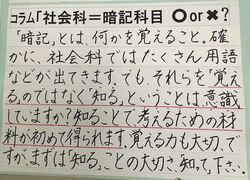 コラム「社会科＝暗記科目 ○or✖？
「暗記」とは、何かを覚えること。確
かに、社会科ではたくさん用語
などが出てきます。でも それらを「覚え
る」のではなく「知る」ということは意識
していますか？知ることで考えるための材
料が初めて得られます。覚える力も大切。で
すが、まずは「知る」ことの大切さ知って下さい。